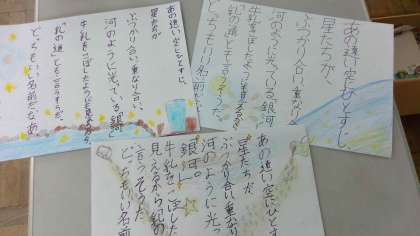 あの遠い空にひとすじ、
星たちが、
ぶつかり合い、重なり合い、
河のように光っている「銀河」。
牛乳をこぼしたように見えるから
「乳の道」とも言うそうだ。
どっちもいい名前だなあ
あの遠い空にひとすじ、
星たちが、
ぶつかり合い、重なり
河のように光っている「銀河
牛乳をこぼしたように見えるから
「乳の道」とも言うそうだ。
どっちもいい名前だ
あの遠い空にひとす
星たちが
ぶつかり合い、重なり
河のように光っ
「銀河」。
牛乳をこぼした
見えるから「乳の
言うそうだ
どっちもいい名前